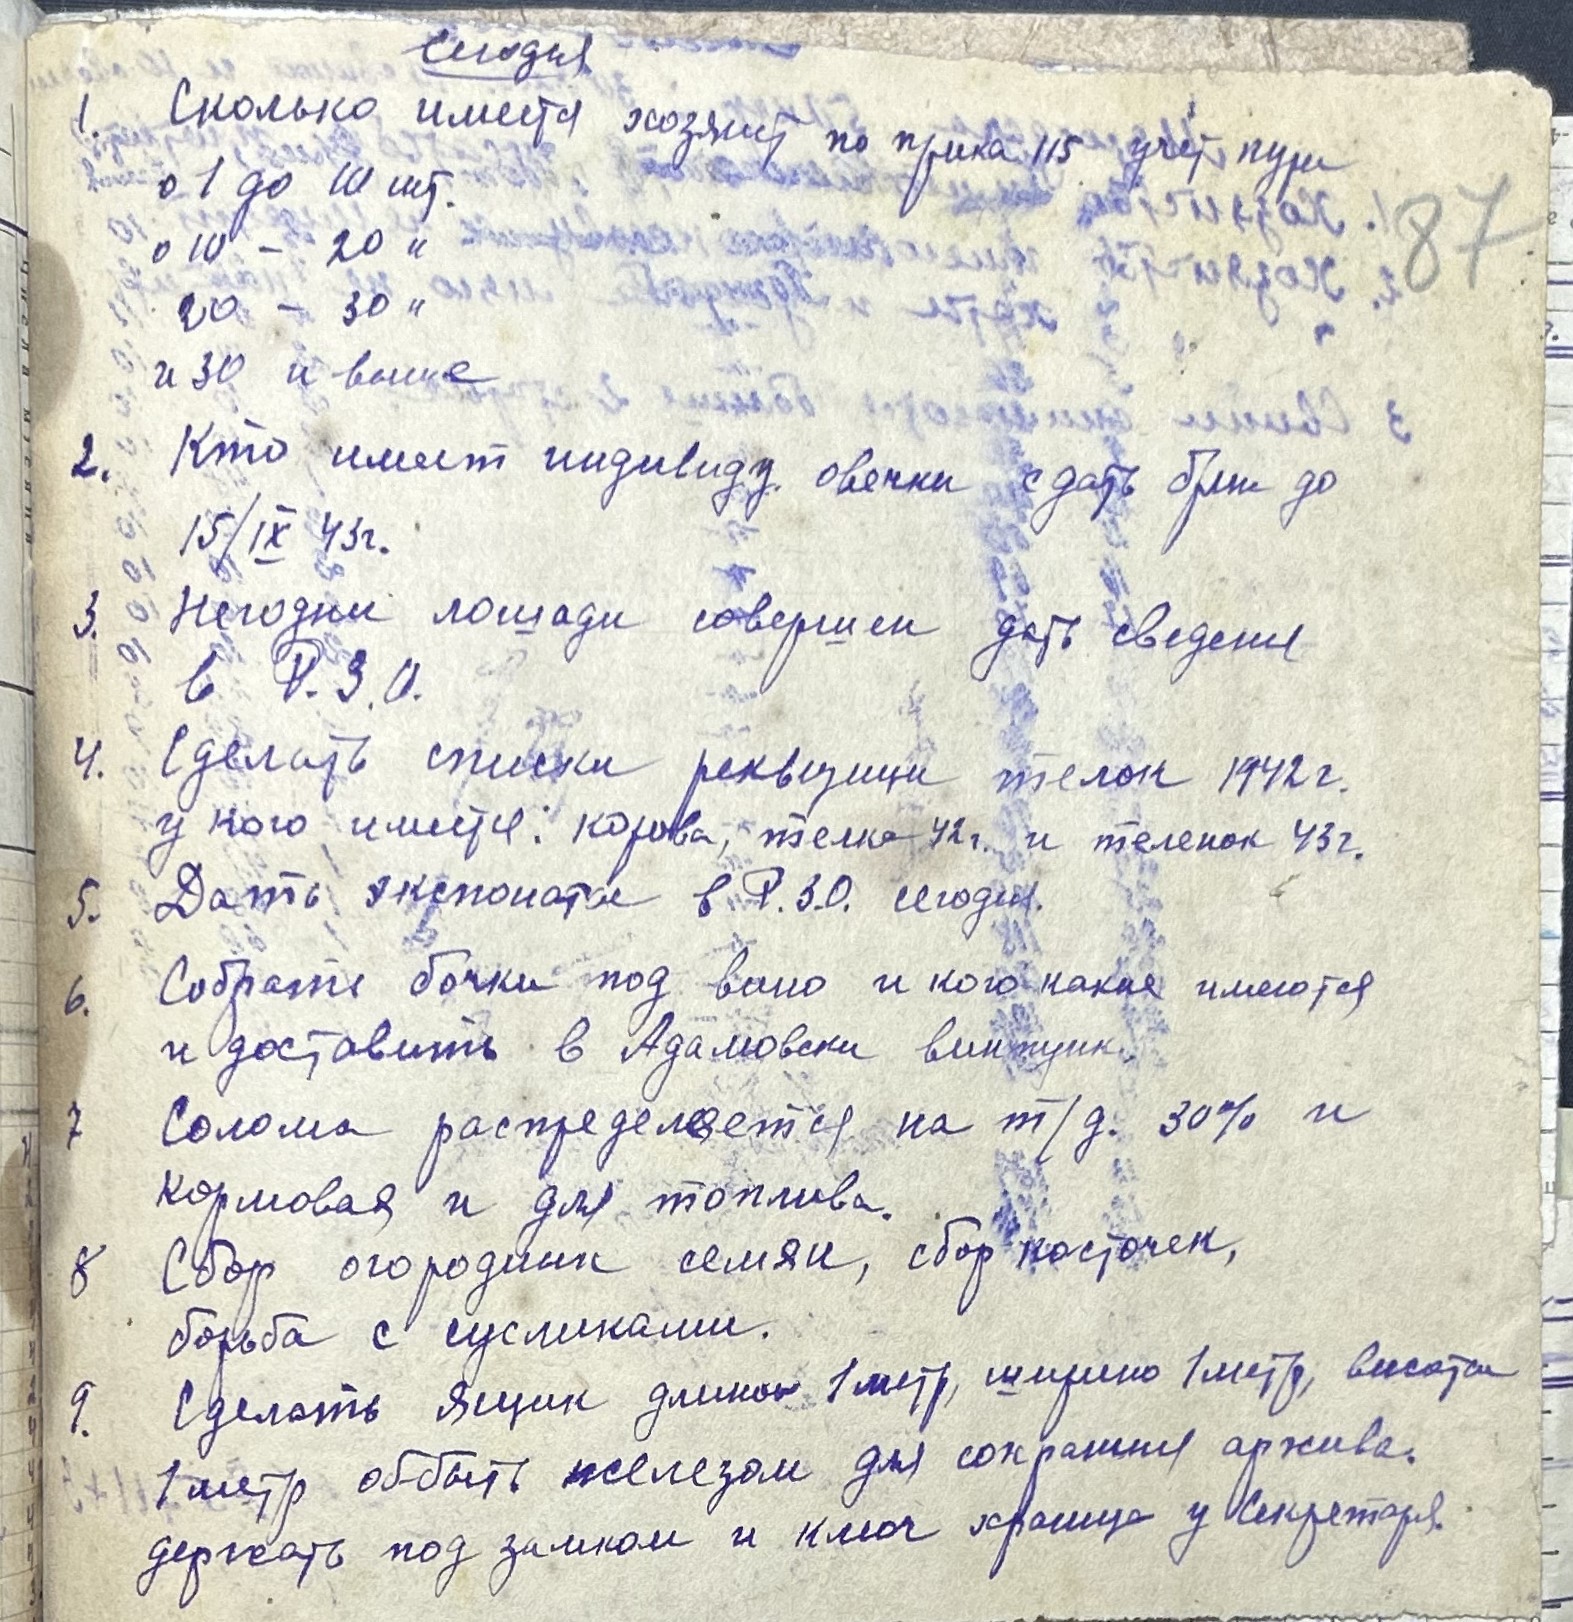 Сегодня
1. Сколько имется хозяит по прика 115 учёт
о 1 до 10 шт.
о 10 - 20 "
20 - 30 "
и 30 и выше
87
2. Кто имеет индивиду. овечки сдать до
15/IX 43г.
3. Негодни лошади совершен дать сведения
в Р.З.О.
4. Сделать списки реквизици телок 1942г.
у кого имется: корова, телка 42г. и теленок 43г.
5. Дать экспонаты в Р.З.О. сегодня.
6. Собрать бочки под вино и кого какие имеются
и доставить в Адамовски винпунк.
7 Солома распределяется на т/д. 30% и
кормовая и для топлива.
8 Сбор огородник семян, сбор косточек,
борьба с сусликами.
9. Сделать ящик длиной 1 метр, ширино 1 метр, висоты
1 метр оббыть железом для сохрания архива.
держать под замком и ключ храница у Секретаря.